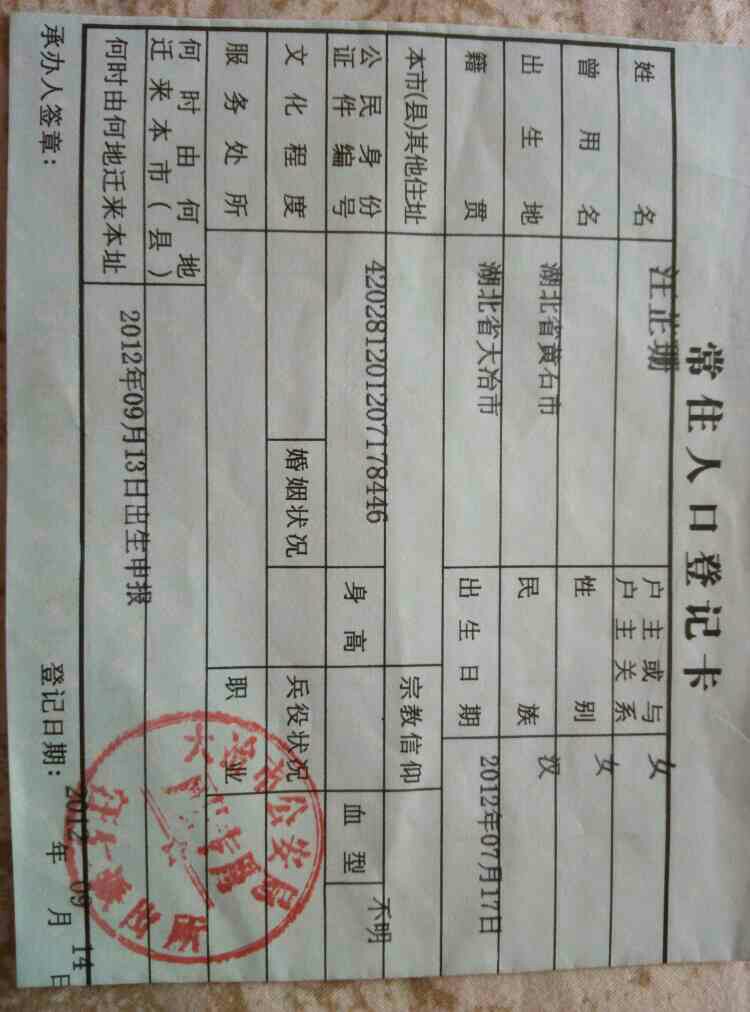 常住人口登记卡
姓名 汪芷珊 户主或与户主关系 女
曾用名 性别 女
出生地 湖北省黄石市 民族 汉
籍贯 湖北省大冶市 出生日期 2012年07月17日
本市(县)其他住址 宗教信仰
公民身份证件编号 420281201207178446 身高 血型 不明
文化程度 婚姻状况 兵役状况
服务处所 职业
何时由何地迁来本市(县)
何时由何地迁来本址 2012年09月13日出生申报
承办人签章: 登记日期: 2012年09月14日
大冶市公安局
派出所